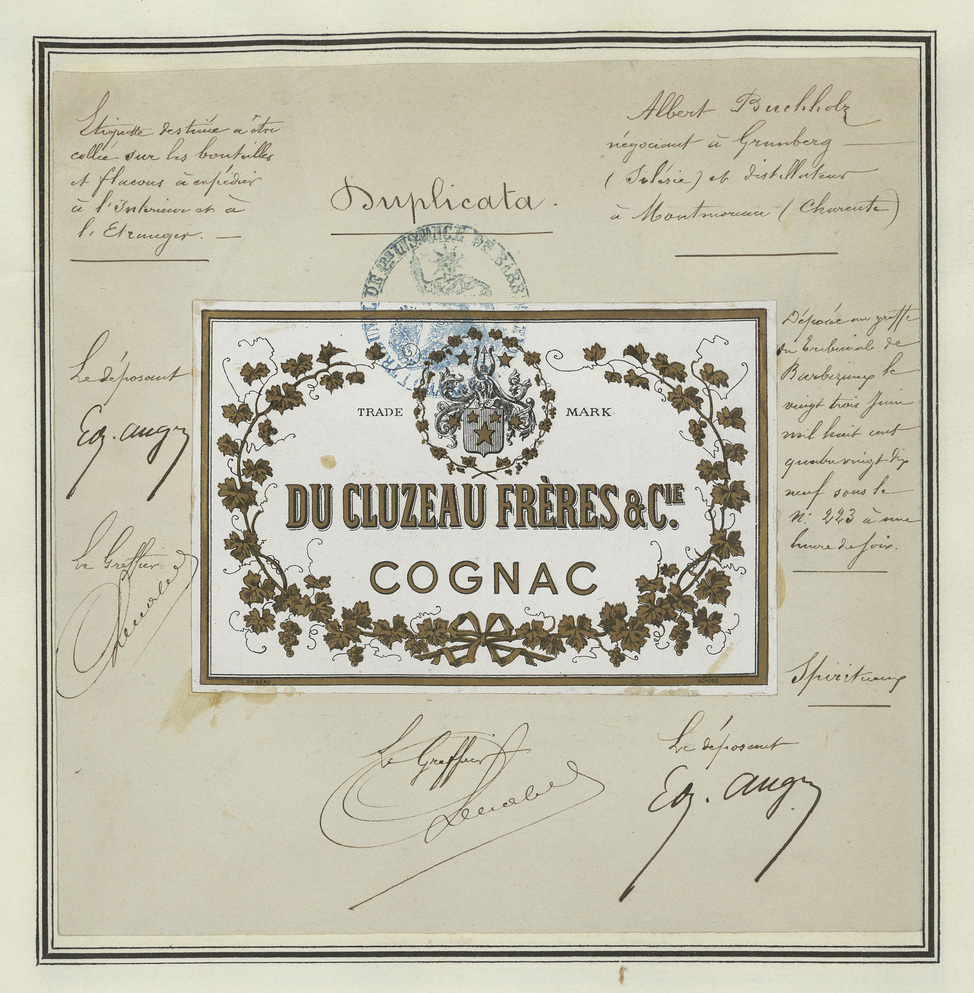 Etiquette destinée a être
collée sur les bouteilles
et flacons à expédier
à l'Interieur et à
l'Etranger. —
Duplicata.
Albert Buchholz
négociant à Grunberg —
(Silésie) et distillateur
à Montmoreau (Charente)
TRIBUNAL DE 1ère INSTANCE DE BARBEZIEUX
Le déposant
Eg. Augy
Le Greffier
TRADE MARK
DU CLUZEAU FRÈRES & CIE.
COGNAC
Déposée au greffe
du tribunal de
Barbezieux le
vingt trois Juin
mil huit cent
quatre vingt dix
neuf sous le
N° 223 à une
heure de soir.
Spiritueux
Le Greffier
Le déposant
Eg. Augy